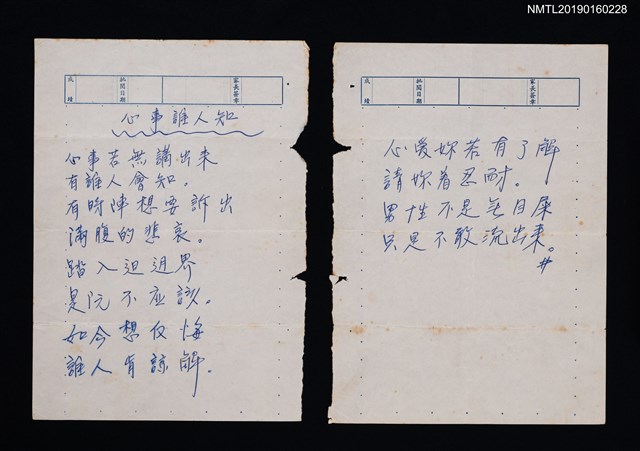 NMTL20190160228
成績
批閱日期
家長簽章
心事誰人知
心事若無講出來
有誰人會知。
有時陣想要訴出
滿腹的悲哀。
踏入迌迌界
是阮不应該。
如今想反悔
誰人肯諒解。
成績
批閱日期
家長簽章
心愛妳若有了解
請妳着忍耐。
男性不是無目屎
只是不敢流出來。
#